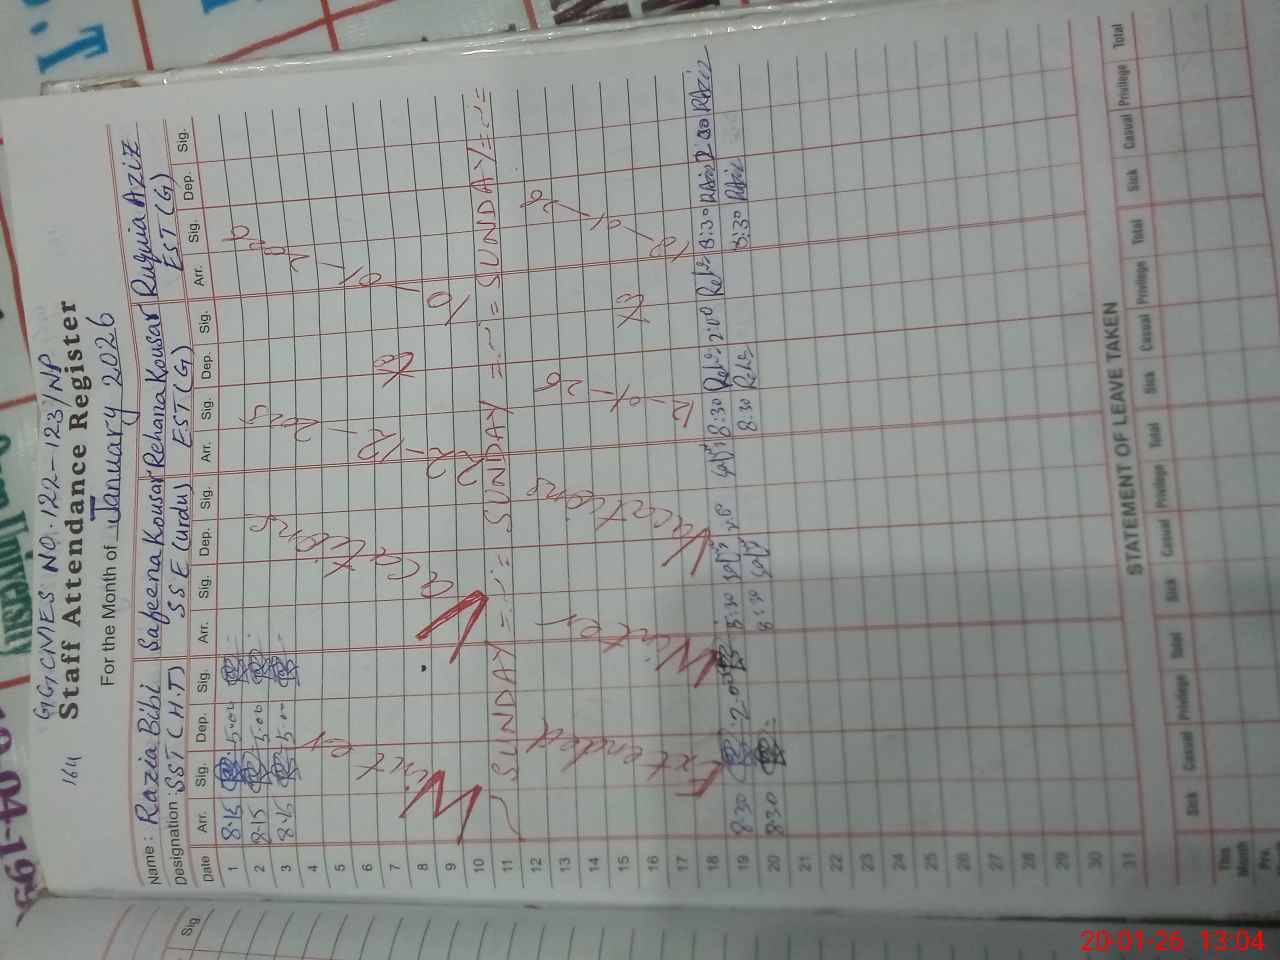 164
GGCMES NO. 122-123/NP
Staff Attendance Register
For the Month of January 2026
Name: Razia Bibi Safeena Kousar Rehana Kousar Ruquia Aziz
Designation: SST (H.T) SSE (Urdu) EST (G) EST (G)
Date Arr. Sig. Dep. Sig. Arr. Sig. Dep. Sig. Arr. Sig. Dep. Sig. Arr. Sig. Dep. Sig.
1 8.15 5.00
2 8.15 5.00
3 8.15 5.00
4
5
6
7
8
9
10
11 SUNDAY SUNDAY SUNDAY SUNDAY
12
13
14
15
16
17
18
19 8.30 2.00 8:30 8:30 2:00 8:30 2:00
20 8.30 8:30 8:30 8:30
21
22
23
24
25
26
27
28
29
30
31
Winter Vacations 22-12-2025 to 10-01-
Extended Winter Vacations 12-01-26 to
STATEMENT OF LEAVE TAKEN
Sick Casual Privilege Total Sick Casual Privilege Total Sick Casual Privilege Total Sick Casual Privilege Total
This Month
Pre.
Sig.
20-01-26 13:04